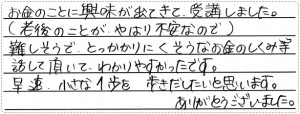 お金のことに興味が出てきて、受講しました。
(老後のことが、やはり不安なので)
難しそうで、とっかかりにくそうなお金のしくみ等
話して頂いて、わかりやすかったです。
早速、小さな1歩を 歩きだしたいと思います。
ありがとうございました。